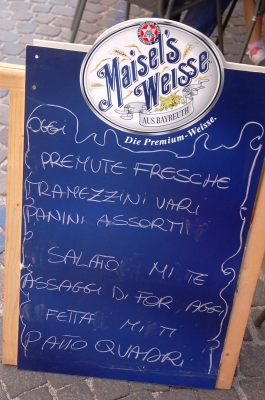 Maisel's
Weisse
AUS BAYREUTH
Die Premium-Weisse.
OGGI
PREMUTE FRESCHE
TRAMEZZINI VARI
PANINI ASSORTI
SALATO MI TE
ASSAGGI DI FOR AGGI
FETTA MI TI
PIATTO QUADRI